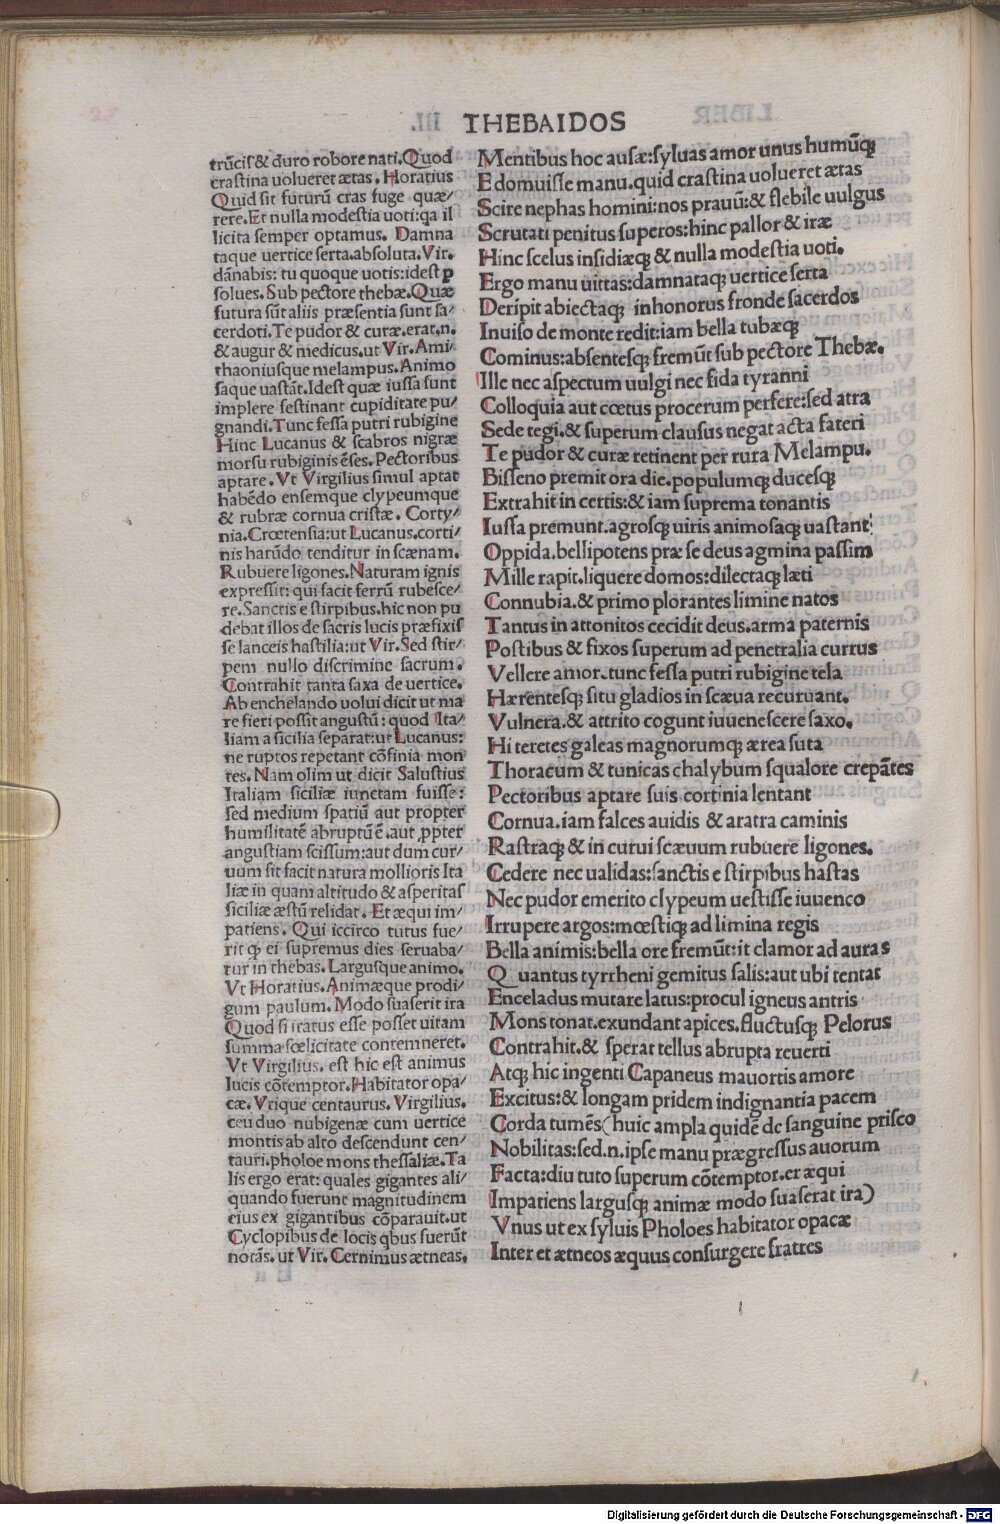 THEBAIDOS
trūcis & duro robore nati. Quod
crastina uolueret ætas. Horatius
Quid sit futurū cras fuge quæ/
rere. Et nulla modestia uoti: qa il
licita semper optamus. Damna
taque uertice serta. absoluta. Vir.
dānabis: tu quoque uotis: idest ꝑ
solues. Sub pectore thebæ. Quæ
futura sūt aliis præsentia sunt sa/
cerdoti. Te pudor & curæ. erat. n.
& augur & medicus. ut Vir. Ami/
thaoniusque melampus. Animo
saque uastāt. Idest quæ iussa sunt
implere festinant cupiditate pu/
gnandi. Tunc fessa putri rubigine
Hinc Lucanus & scabros nigræ
morsu rubiginis ēses. Pectoribus
aptare. Vt Virgilius simul aptat
habēdo ensemque clypeumque
& rubræ cornua cristæ. Corty/
nia. Crœtensia: ut Lucanus. corti/
nis harūdo tenditur in scænam.
Rubuere ligones. Naturam ignis
expressit: qui facit ferrū rubesce/
re. Sanctis e stirpibus. hic non pu
debat illos de sacris lucis præfixis
se lanceis hastilia: ut Vir. Sed stir/
pem nullo discrimine sacrum.
Contrahit tanta saxa de uertice.
Ab enchelando uolui dicit ut ma
re fieri possit angustū: quod Ita/
liam a sicilia separat: ut Lucanus:
ne ruptos repetant cōfinia mon
tes. Nam olim ut dicit Salustius
Italiam siciliæ iunctam fuisse:
sed medium spatiū aut propter
humilitatē abruptū ē. aut ꝓpter
angustiam scissum: aut dum cur/
uum sit facit natura mollioris Ita
liæ in quam altitudo & asperitas
siciliæ æstū relidat. Et æqui im/
patiens. Qui iccirco tutus fue/
rit ꝙ ei supremus dies seruaba/
tur in thebas. Largusque animo.
Vt Horatius. Animæque prodi/
gum paulum. Modo suaserit ira
Quod si iratus esse posset uitam
summa fœlicitate contemneret.
Vt Virgilius. est hic est animus
lucis cōtemptor. Habitator opa/
cæ. Vtique centaurus. Virgilius.
ceu duo nubigenæ cum uertice
montis ab alto descendunt cen/
tauri. pholoe mons thessaliæ. Ta
lis ergo erat: quales gigantes ali/
quando fuerunt magnitudinem
eius ex gigantibus cōparauit. ut
Cyclopibus de locis qbus fuerūt
notās. ut Vir. Cernimus ætneas.
Mentibus hoc ausæ: syluas amor unus humūqꝫ
Edomuisse manu. quid crastina uolueret ætas
Scire nephas homini: nos prauū: & flebile uulgus
Scrutati penitus superos: hinc pallor & iræ
Hinc scelus insidiæqꝫ & nulla modestia uoti.
Ergo manu uittas: damnataqꝫ uertice serta
Deripit abiectaqꝫ inhonorus fronde sacerdos
Inuiso de monte redit: iam bella tubæqꝫ
Cominus: absentesqꝫ fremūt sub pectore Thebæ.
Ille nec aspectum uulgi nec fida tyranni
Colloquia aut cœtus procerum perfere: sed atra
Sede tegi. & superum clausus negat acta fateri
Te pudor & curæ retinent per rura Melampu.
Bisseno premit ora die. populumqꝫ ducesqꝫ
Extrahit in certis: & iam suprema tonantis
Iussa premunt. agrosqꝫ uiris animosaqꝫ uastant:
Oppida. bellipotens præ se deus agmina passim
Mille rapit. liquere domos: dilectaqꝫ læti
Connubia. & primo plorantes limine natos
Tantus in attonitos cecidit deus. arma paternis
Postibus & fixos superum ad penetralia currus
Vellere amor. tunc fessa putri rubigine tela
Hærentesqꝫ situ gladios in scæua recuruant.
Vulnera. & attrito cogunt iuuenescere saxo.
Hi teretes galeas magnorumqꝫ ærea suta
Thoracum & tunicas chalybum squalore crepātes
Pectoribus aptare suis cortinia lentant
Cornua. iam falces auidis & aratra caminis
Rastraqꝫ & in curui scæuum rubuere ligones.
Cedere nec ualidas: sanctis e stirpibus hastas
Nec pudor emerito clypeum uestisse iuuenco
Irrupere argos: mœstiqꝫ ad limina regis
Bella animis: bella ore fremūt: it clamor ad auras
Quantus tyrrheni gemitus salis: aut ubi tentat
Enceladus mutare latus: procul igneus antris
Mons tonat. exundant apices. fluctusqꝫ Pelorus
Contrahit. & sperat tellus abrupta reuerti
Atqꝫ hic ingenti Capaneus mauortis amore
Excitus: & longam pridem indignantia pacem
Corda tumēs (huic ampla quidē de sanguine prisco
Nobilitas: sed. n. ipse manu prægressus auorum
Facta: diu tuto superum cōtemptor. et æqui
Impatiens largusqꝫ animæ modo suaserat ira)
Vnus ut ex syluis Pholoes habitator opacæ
Inter et ætneos æquus consurgere fratres
Digitalisierung gefördert durch die Deutsche Forschungsgemeinschaft - DFG